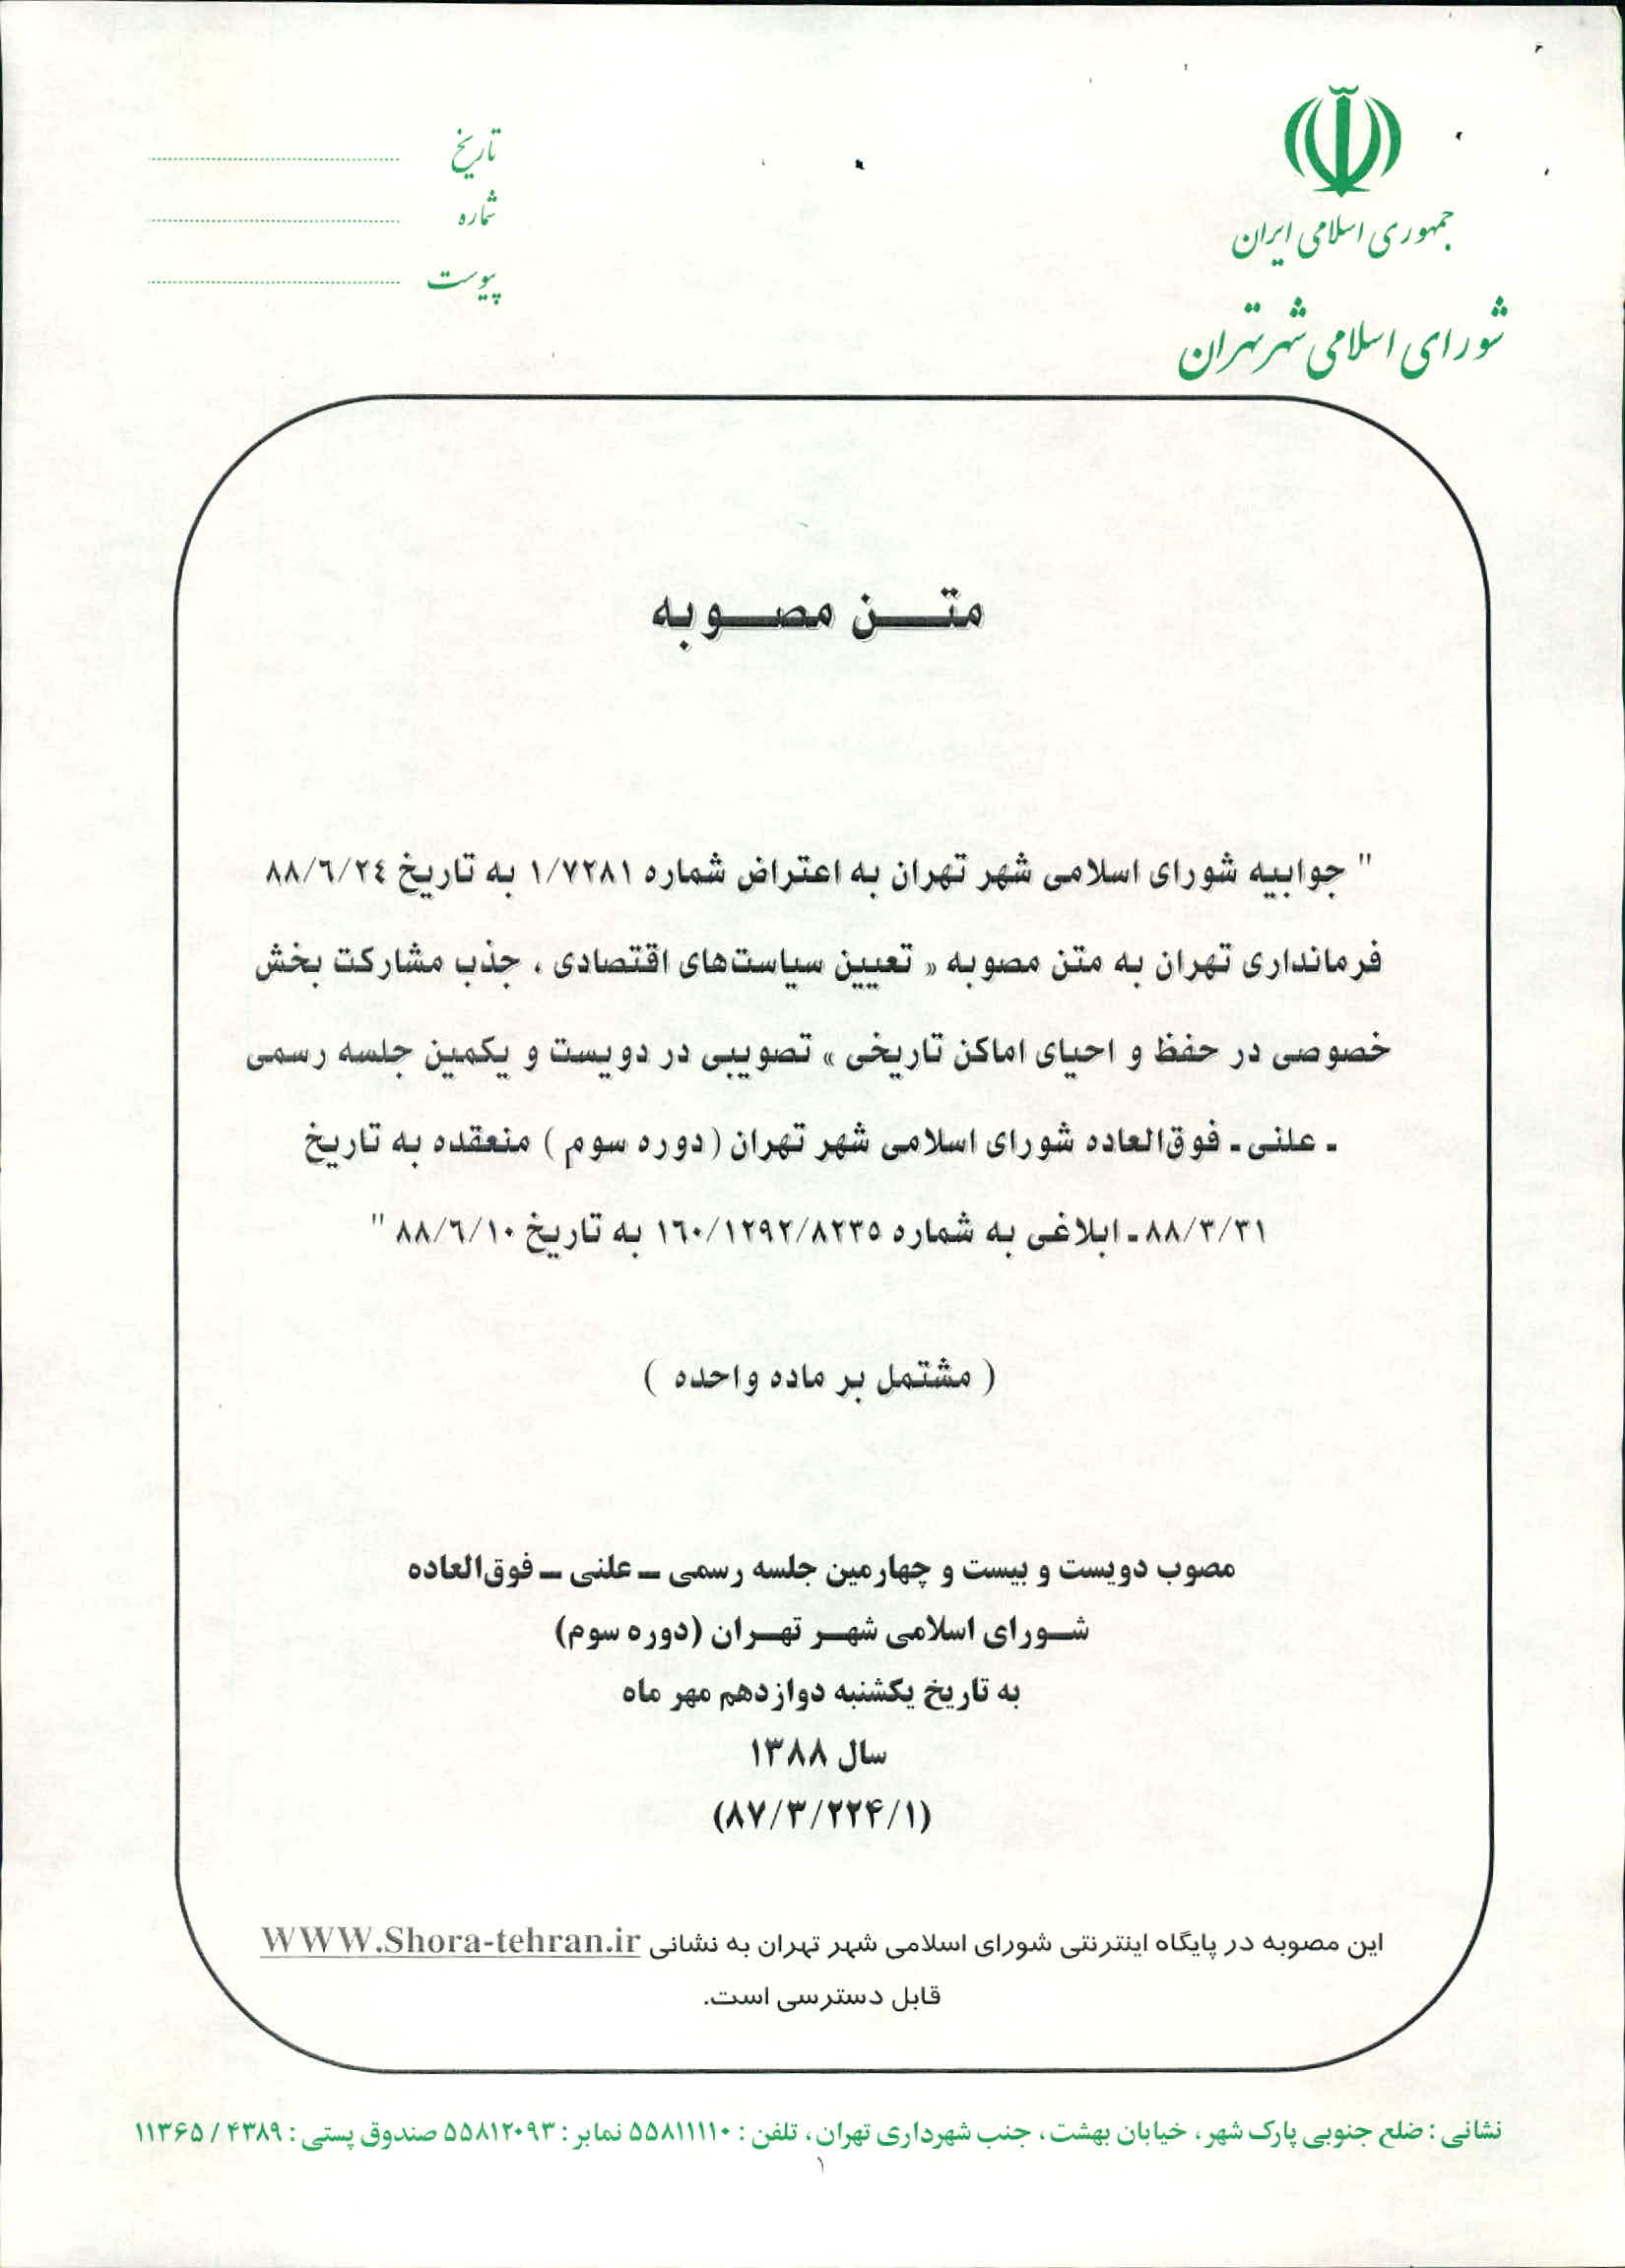 جمهوری اسلامی ایران
شورای اسلامی شهر تهران
تاریخ
شماره
پیوست
متـــن مصـــوبه
" جوابیه شورای اسلامی شهر تهران به اعتراض شماره ۱/۷۲۸۱ به تاریخ ۸۸/٦/۲٤
فرمانداری تهران به متن مصوبه « تعیین سیاست‌های اقتصادی ، جذب مشارکت بخش
خصوصی در حفظ و احیای اماکن تاریخی » تصویبی در دویست و یکمین جلسه رسمی
ـ علنی ـ فوق‌العاده شورای اسلامی شهر تهران ( دوره سوم ) منعقده به تاریخ
۸۸/۳/۳۱ ـ ابلاغی به شماره ۱٦۰/۱۲۹۲/۸۲۳٥ به تاریخ ۸۸/٦/۱۰ "
( مشتمل بر ماده واحده )
مصوب دویست و بیست و چهارمین جلسه رسمی ـ علنی ـ فوق‌العاده
شــورای اسلامی شهــر تهــران (دوره سوم)
به تاریخ یکشنبه دوازدهم مهر ماه
سال ۱۳۸۸
(۸۷/۳/۲۲۴/۱)
این مصوبه در پایگاه اینترنتی شورای اسلامی شهر تهران به نشانی WWW.Shora-tehran.ir
قابل دسترسی است.
نشانی : ضلع جنوبی پارک شهر، خیابان بهشت، جنب شهرداری تهران، تلفن : ۵۵۸۱۱۱۱۰ نمابر : ۵۵۸۱۲۰۹۳ صندوق پستی : ۴۳۸۹ / ۱۱۳۶۵
۱